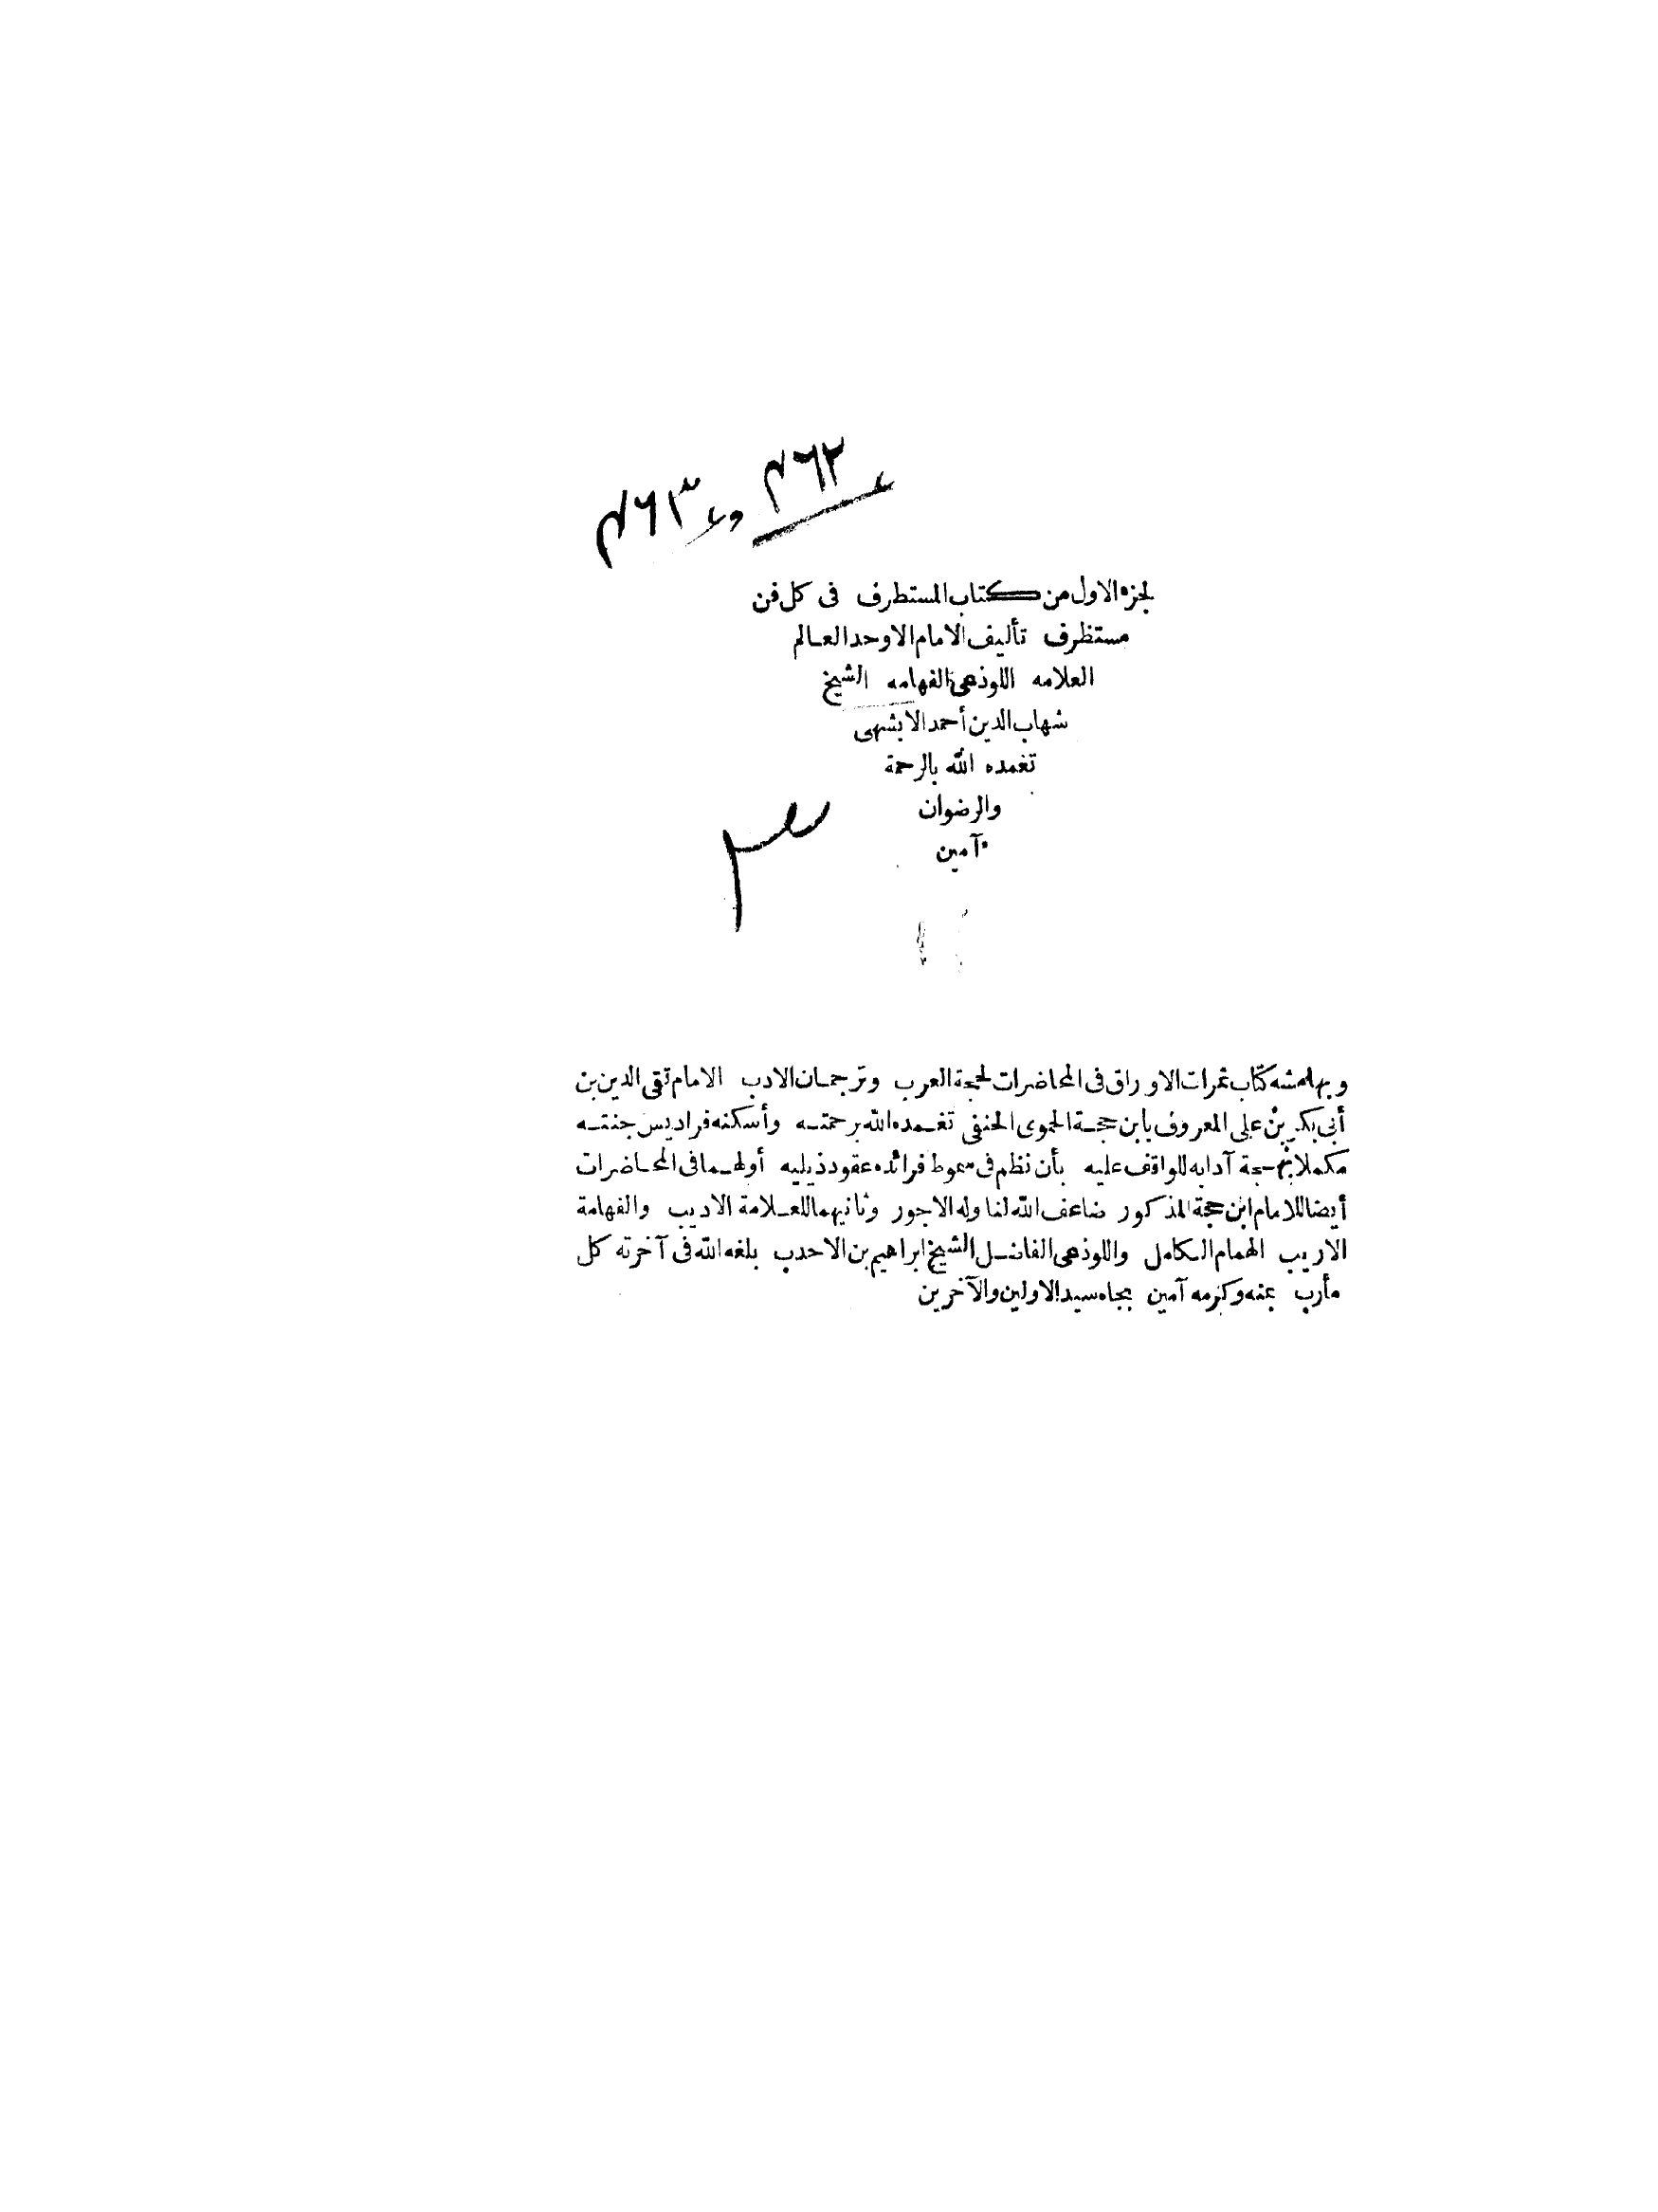 لجزء الاول من كتاب المستطرف فى كل فن
مستظرف تأليف الامام الاوحد العالم
العلامه اللوذعى الفهامه الشيخ
شهاب الدين أحمد الابشيهى
تغمده الله بالرحمة
والرضوان
آمين
وبهامشه كتاب ثمرات الاوراق فى المحاضرات لحجة العرب وترجمان الادب الامام تقى الدين بن
أبى بكر بن على المعروف بابن حجة الحموى الحنفى تغمده الله برحمته وأسكنه فراديس جنته
مكملا بهجة آدابه للواقف عليه بأن نظم فى سموط فرائده عقود ذيليه أولهما فى المحاضرات
أيضا للامام ابن حجة المذكور ضاعف الله لنا وله الاجور وثانيهما للعلامة الاديب والفهامة
الاريب الهمام الكامل واللوذعى الفاضل الشيخ ابراهيم بن الاحدب بلغه الله فى آخرته كل
مأرب بمنه وكرمه آمين بجاه سيد الاولين والآخرين